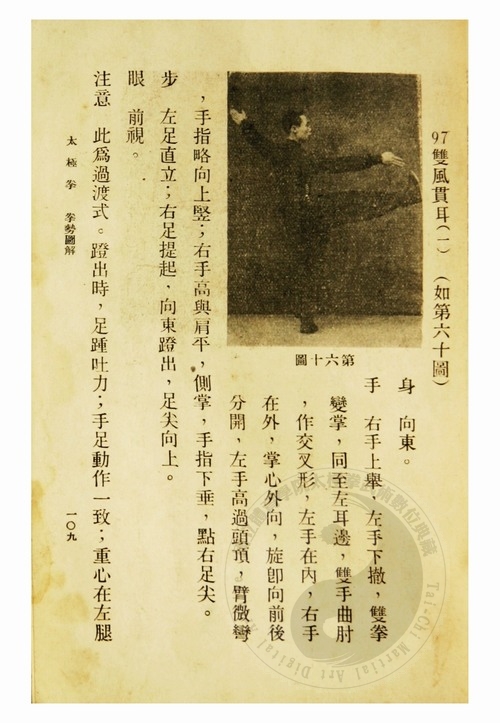 97雙風貫耳(一) (如第六十圖)
第六十圖
身 向東。
手 右手上舉,左手下撤,雙拳
變掌,同至左耳邊,雙手曲肘
,作交叉形,左手在內,右手
在外,掌心外向,旋卽向前後
分開,左手高過頭頂,臂微彎
,手指略向上竪;右手高與肩平,側掌,手指下垂,點右足尖。
步 左足直立;右足提起,向東蹬出,足尖向上。
眼 前視。
注意 此爲過渡式。蹬出時,足踵吐力;手足動作一致;重心在左腿
太極拳 拳勢圖解
一〇九
Tai-Chi Martial Art Digital